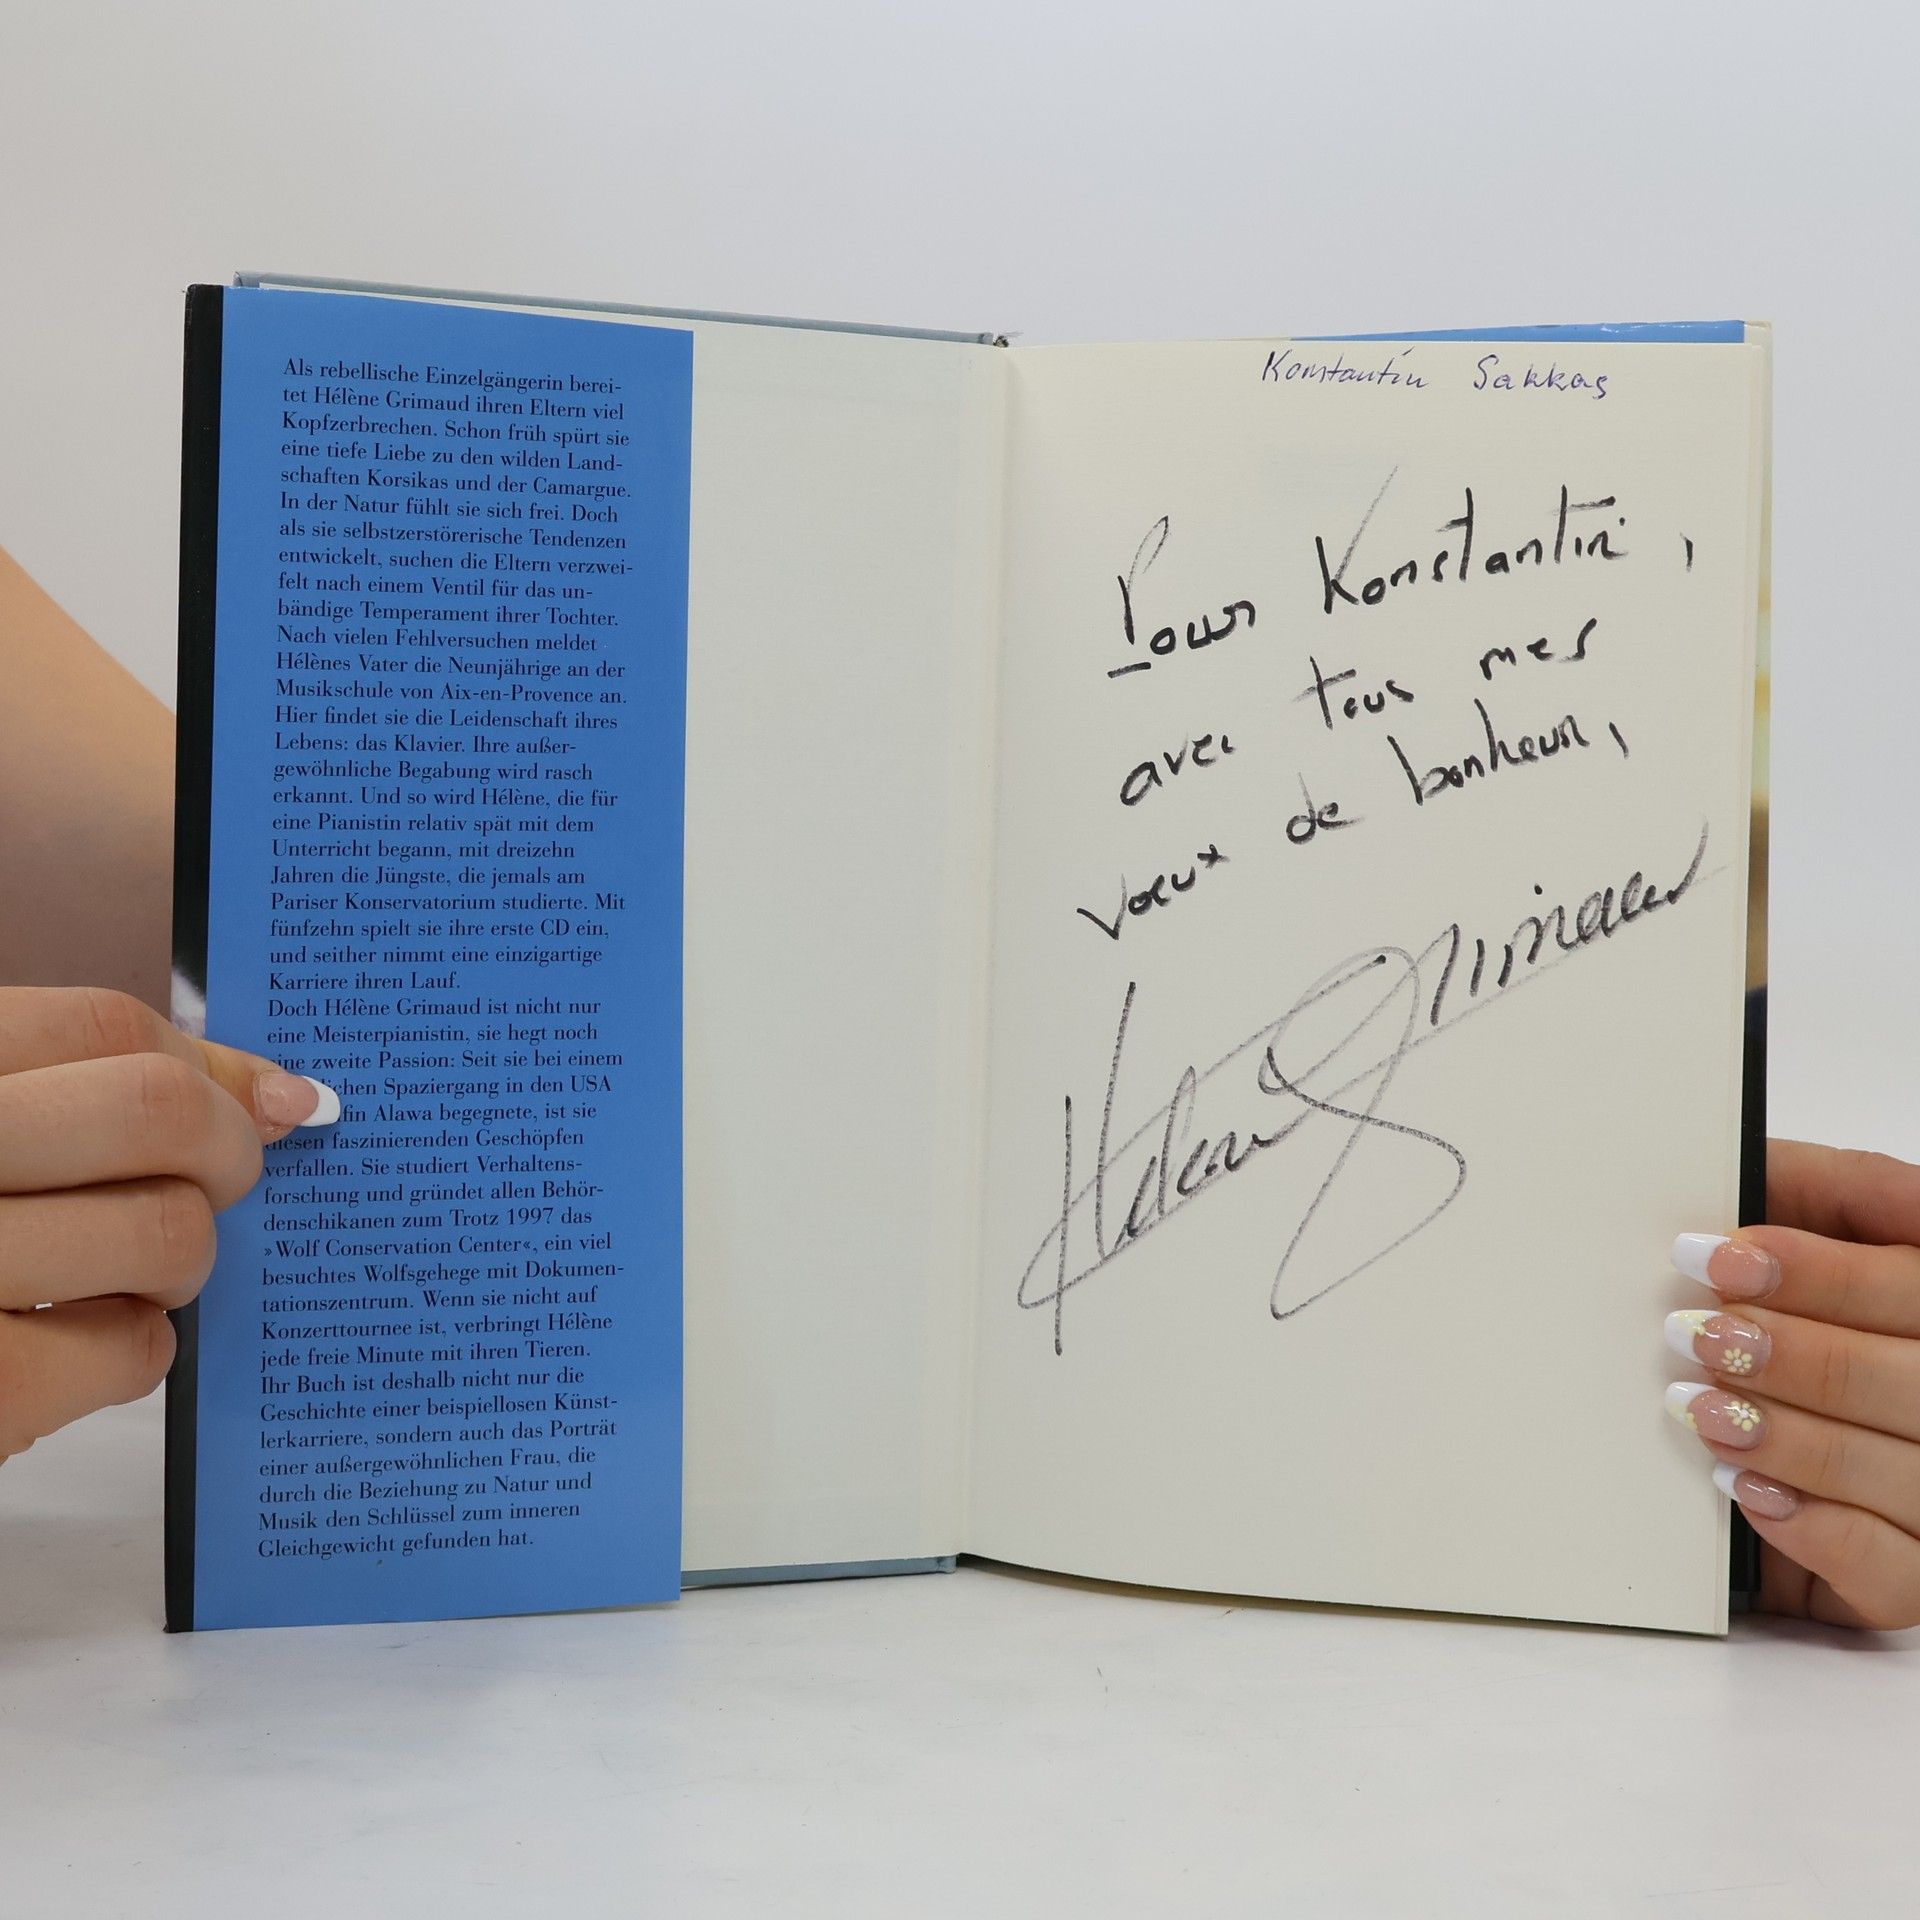 Als rebellische Einzelgängerin berei-
tet Hélène Grimaud ihren Eltern viel
Kopfzerbrechen. Schon früh spürt sie
eine tiefe Liebe zu den wilden Land-
schaften Korsikas und der Camargue.
In der Natur fühlt sie sich frei. Doch
als sie selbstzerstörerische Tendenzen
entwickelt, suchen die Eltern verzwei-
felt nach einem Ventil für das un-
bändige Temperament ihrer Tochter.
Nach vielen Fehlversuchen meldet
Hélènes Vater die Neunjährige an der
Musikschule von Aix-en-Provence an.
Hier findet sie die Leidenschaft ihres
Lebens: das Klavier. Ihre außer-
gewöhnliche Begabung wird rasch
erkannt. Und so wird Hélène, die für
eine Pianistin relativ spät mit dem
Unterricht begann, mit dreizehn
Jahren die Jüngste, die jemals am
Pariser Konservatorium studierte. Mit
fünfzehn spielt sie ihre erste CD ein,
und seither nimmt eine einzigartige
Karriere ihren Lauf.
Doch Hélène Grimaud ist nicht nur
eine Meisterpianistin, sie hegt noch
eine zweite Passion: Seit sie bei einem
lichen Spaziergang in den USA
fin Alawa begegnete, ist sie
diesen faszinierenden Geschöpfen
verfallen. Sie studiert Verhaltens-
forschung und gründet allen Behör-
denschikanen zum Trotz 1997 das
»Wolf Conservation Center«, ein viel
besuchtes Wolfsgehege mit Dokumen-
tationszentrum. Wenn sie nicht auf
Konzerttournee ist, verbringt Hélène
jede freie Minute mit ihren Tieren.
Ihr Buch ist deshalb nicht nur die
Geschichte einer beispiellosen Künst-
lerkarriere, sondern auch das Porträt
einer außergewöhnlichen Frau, die
durch die Beziehung zu Natur und
Musik den Schlüssel zum inneren
Gleichgewicht gefunden hat.
Konstantin Sakkas
Pour Konstantin,
avec tous mes
voeux de bonheur,
Hélène Grimaud